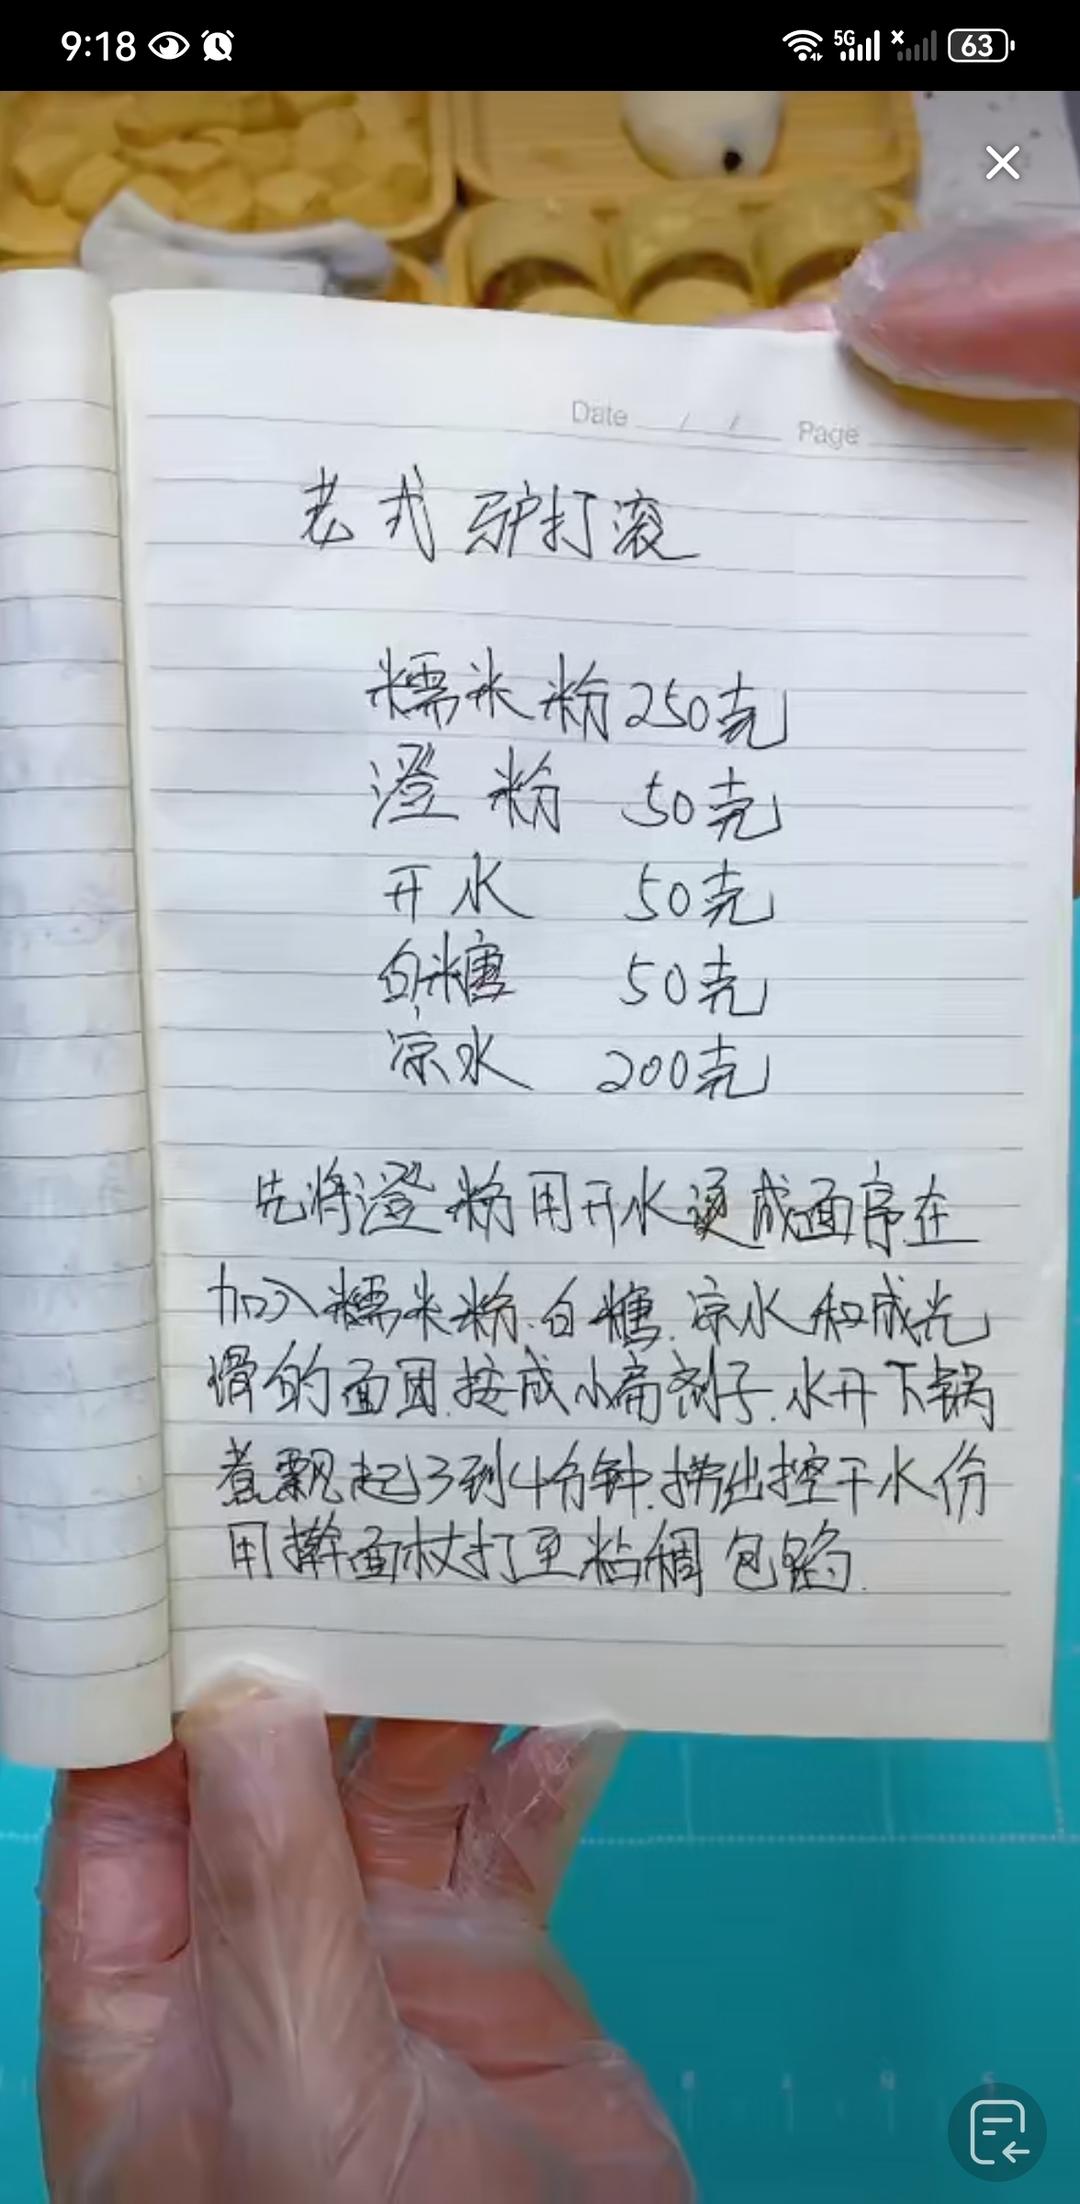 9:18
5G
63
Date / / Page
老式 驴打滚
糯米粉250克
澄粉 50克
开水 50克
白糖 50克
凉水 200克
先将澄粉用开水烫成面序在
加入糯米粉.白糖.凉水和成光
滑的面团.按成小扁剂子.水开下锅
煮飘起3到4分钟.捞出控干水份
用擀面杖打至粘稠 包馅.